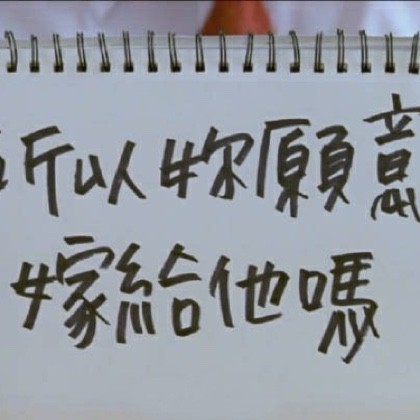 所以妳願意
嫁給他嗎